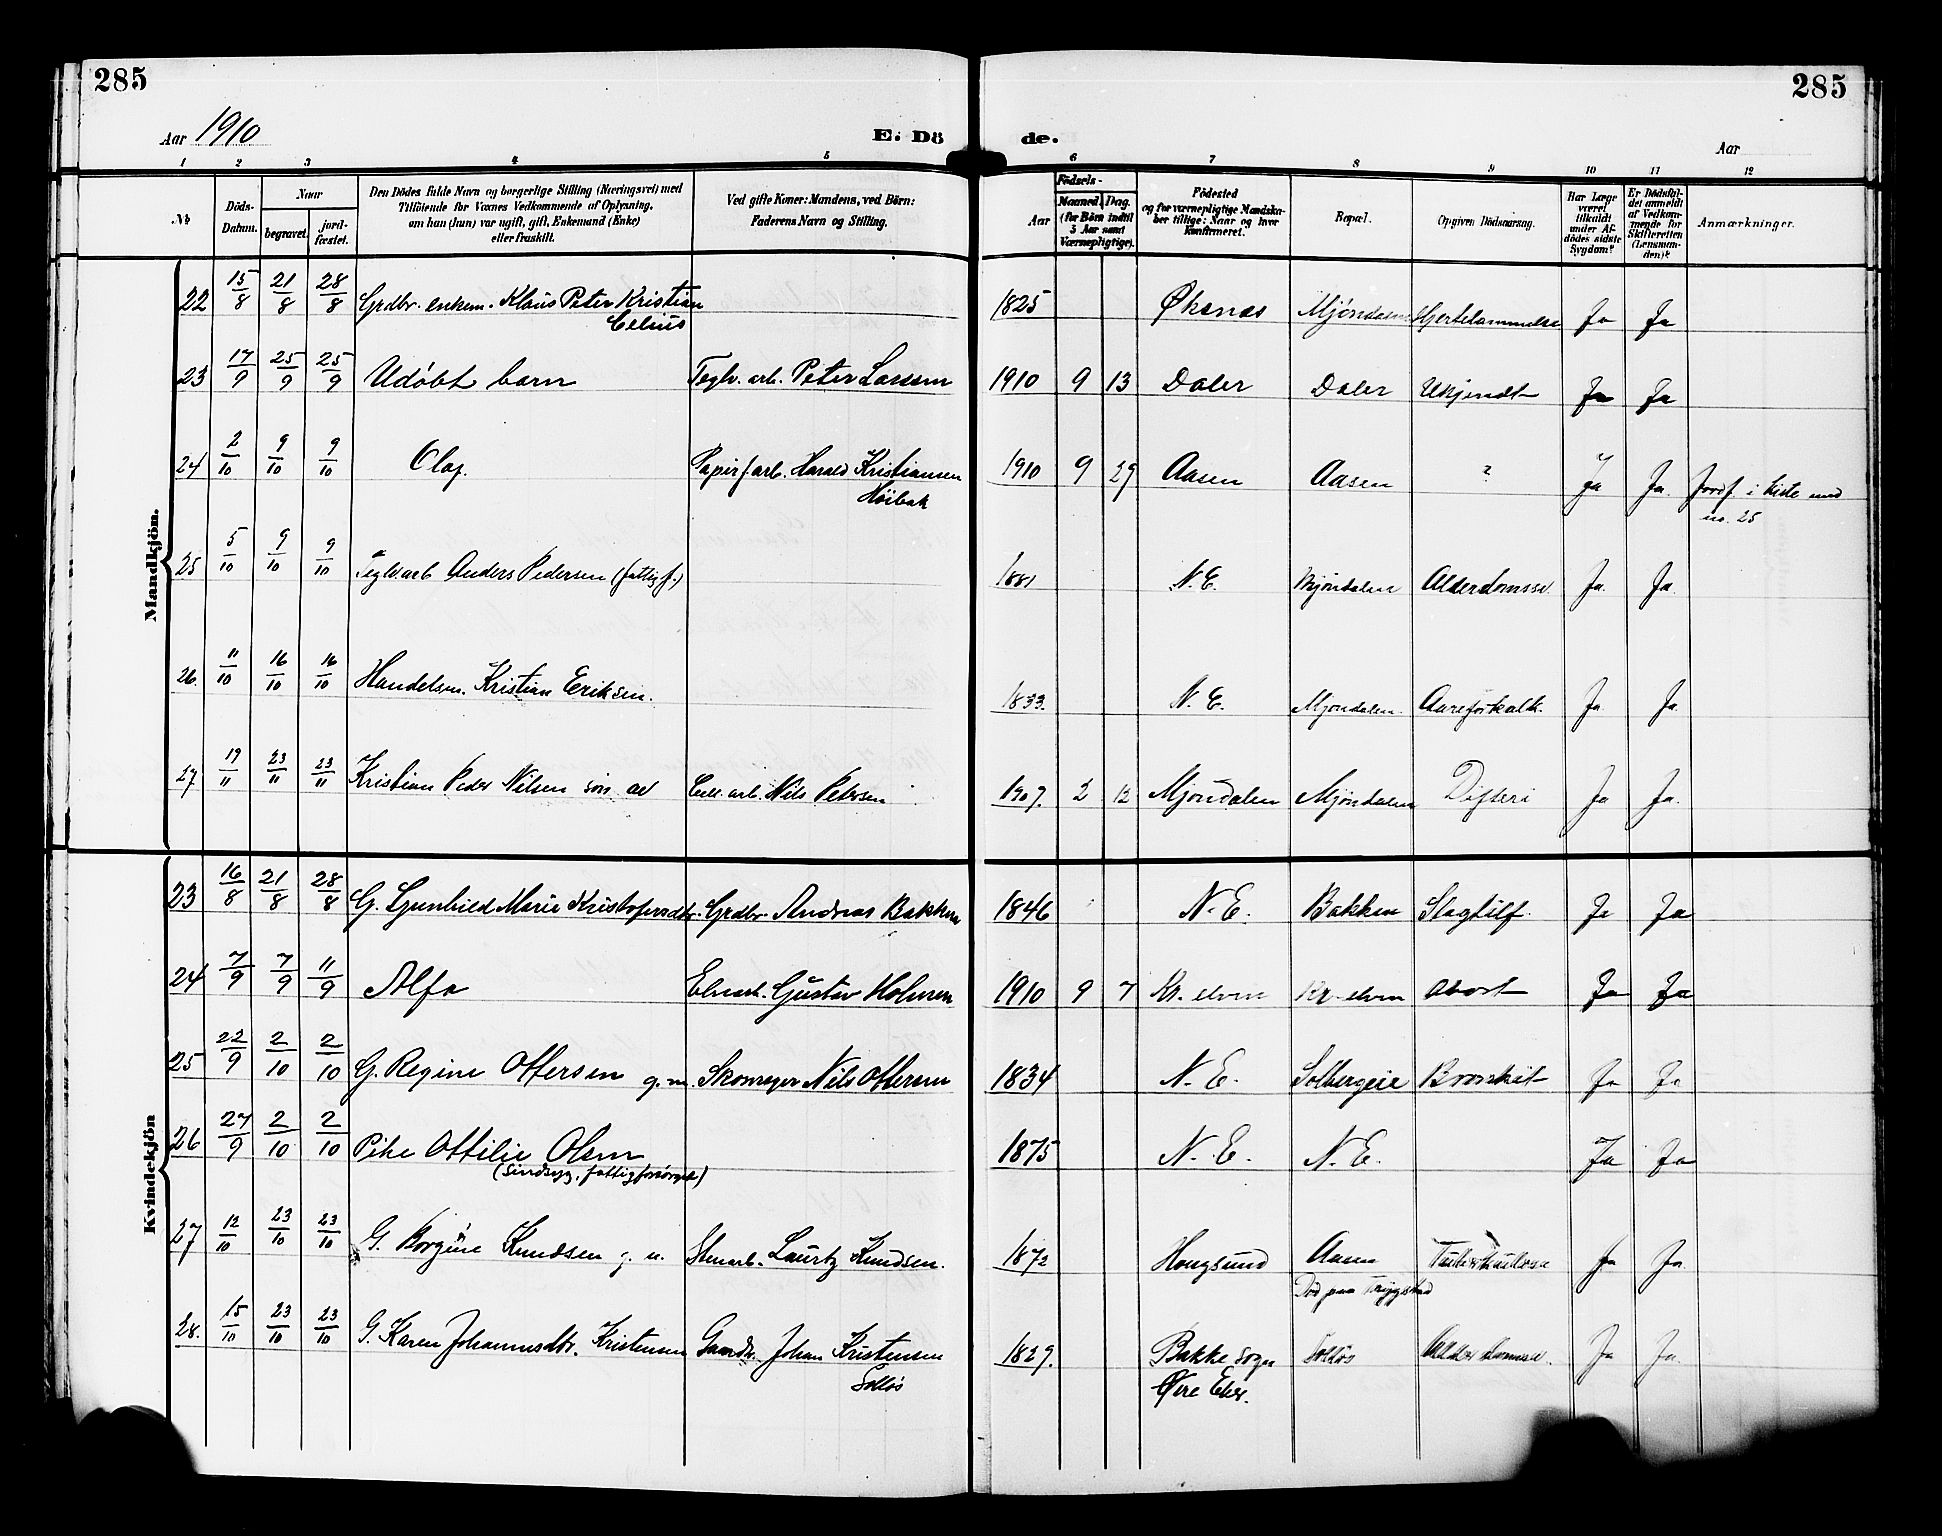 285
285
Aar 1910
E. Dö
de.
Aar
1 2 3 4 5 6 7 8 9 10 11 12
№
Döds-Datum.
Naar
begravet.
jord-fæstet.
Den Dödes fulde Navn og borgerlige Stilling (Næringsvei) med
Tilföiende for Vœrnes Vedkommende af Oplysning,
om han (hun) var ugift, gift, Enkemand (Enke)
eller fraskilt.
Ved gifte Koner: Mandens, ved Börn:
Faderens Navn og Stilling.
Födsels-
Aar
Maaned.
Dag.
(for Börn indtil
5 Aar samt
Værnepligtige).
Födested
og for værnepligtige Mandska-
ber tillige: Naar og hvor
konfirmeret.
Bopæl.
Opgiven Dödsaarsag.
Har Læge
været
tilkaldt
under Af-
dödes sidste
Sygdom?
Er Dödsfal-
det anmeldt
af Vedkom-
mende for
Skifteretten
(Lensman-
den)?
Anmærkninger.
Mandkjön.
22 15/8 21/8 28/8 Grdbr. enkem. Klaus Peter Kristian 1825 Økenæs Mjöndalen Hjertelammelse Ja Ja
Celius
23 17/9 25/9 25/9 Udöbt barn Teglv. arb. Peter Larssen 1910 9 13 Daler Daler Ukjendt Ja Ja
24 2/10 9/10 9/10 Olaf. Papirf. arb. Harald Kristiansen 1910 9 29 Aasen Aasen ? Ja Ja. Jordf. i kiste med
Höibak
no. 25
25 5/10 9/10 9/10 Teglv. arb Anders Pedersen (fattigf.) N. E. Mjöndalen Alderdomssv. Ja. Ja
26. 11/10 16/10 16/10 Handelsm. Kristian Eriksen. 1833. N. E. Mjöndalen. Aareforkalk. Ja Ja.
27 19/11 23/11 23/11 Kristian Peder Nilsen sön av Cell. arb. Nils Petersen 1907. 2 12 Mjöndalen Mjöndalen Difteri Ja Ja.
Kvindekjön
23 16/8 21/8 28/8 G. Gunhild Marie Kristofersdtr. Grdbr. Andreas Bakken 1846 N. E. Bakken Slagtilf. Ja Ja
24 7/9 7/9 11/9 Alfa Elvearb. Gustav Holmen 1910 9 7 Kr. elven Kr. elven Abort Ja Ja
25 22/9 2/10 2/10 G. Regine Ottersen g. m. Skomager Nils Ottersen 1834 N. E. Solbergeie Bronkit Ja Ja
26 27/9 2/10 2/10 Pike Ottilie Olsen 1875 N. E. N. E. Ja Ja
(Sindssyg, fattigforsörget)
27 12/10 23/10 23/10 G. Borgine Knudsen g. m. Stenarb. Lauritz Knudsen. 1872 Hougsund Aasen Tuberkulose Ja Ja.
Död paa Trygstad
28. 15/10 23/10 23/10 G. Karen Johannesdtr. Kristensen Gaardbr. Johan Kristensen 1829. Bakke Sogn Solløs Alderdomssv. Ja Ja.
Solløs
Øvre Eker.